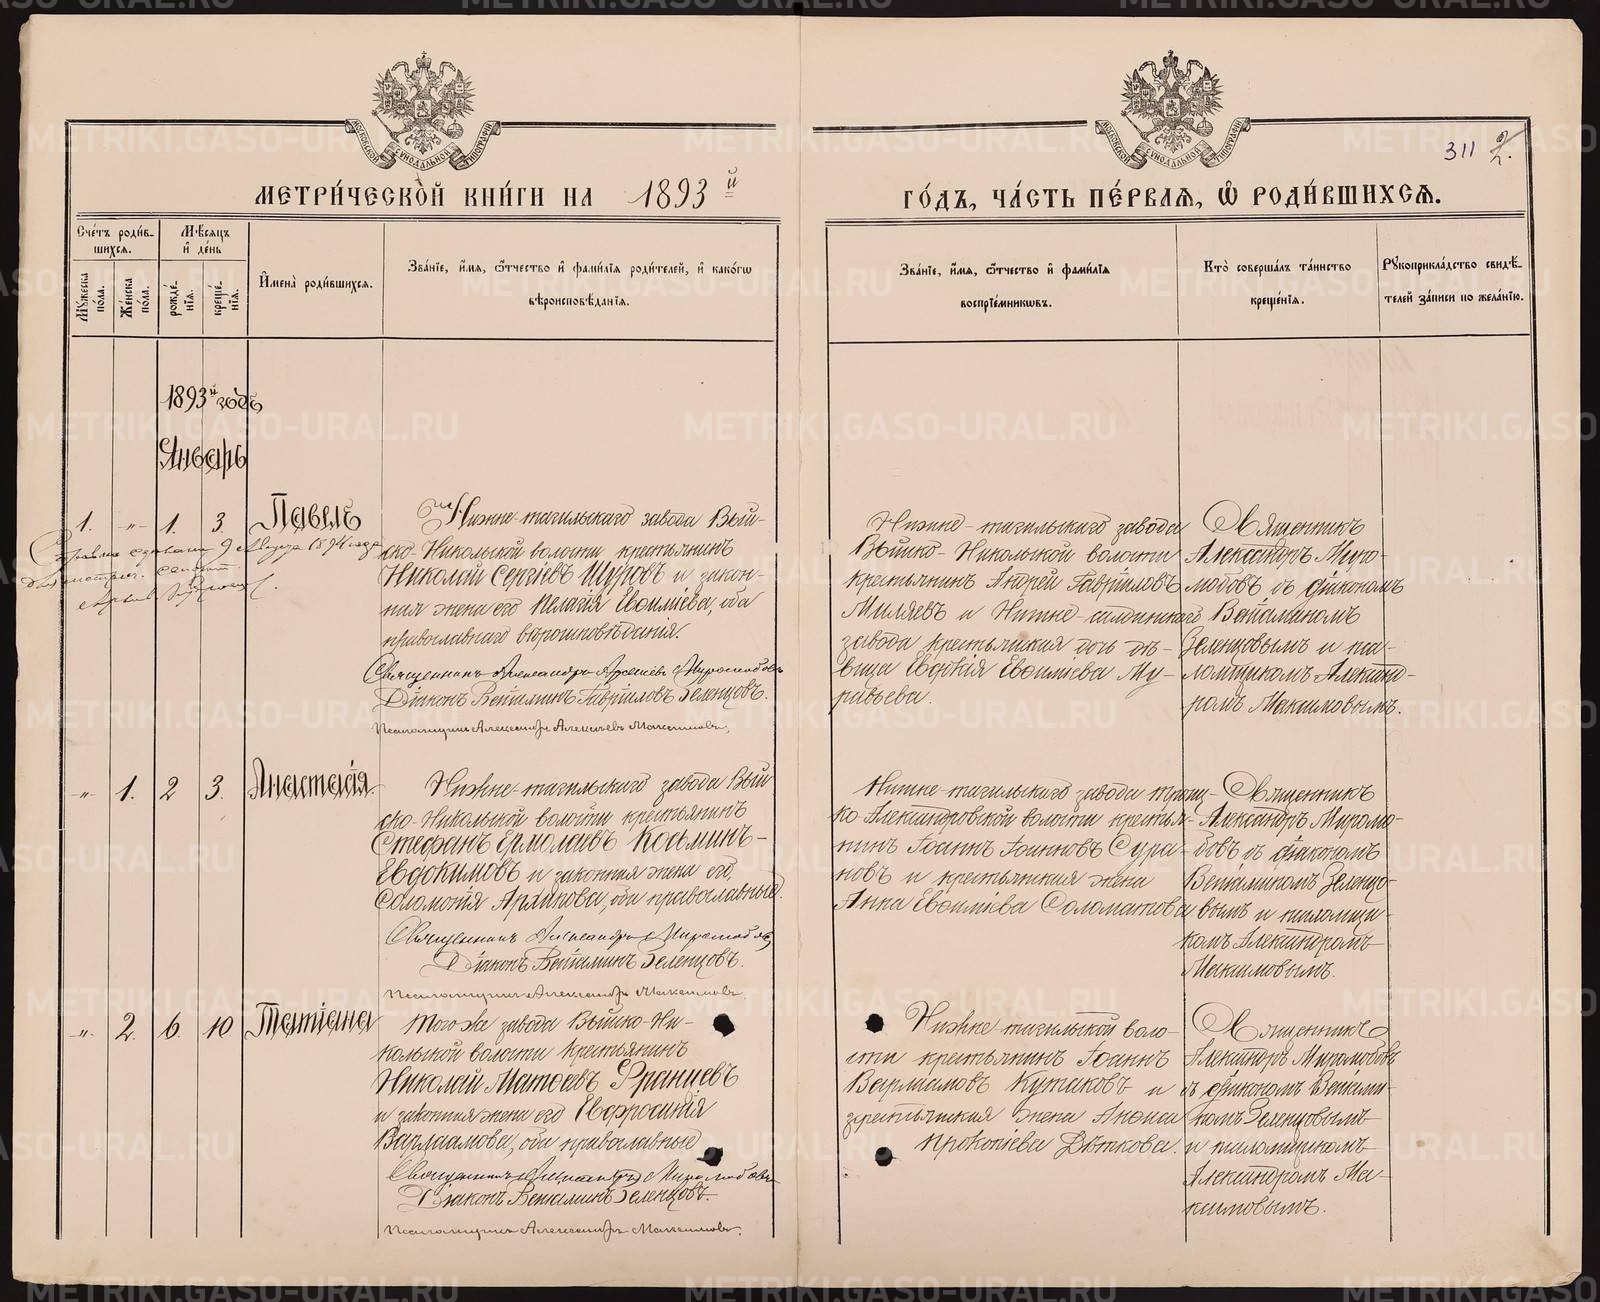 311 2.
МЕТРИ́ЧЕСКОЙ КНИ́ГИ НА 1893й
ГО́ДЪ, ЧА́СТЬ ПЕ́РВАЯ, Ѿ РОДИ́ВШИХСѦ.
Сче́тъ роди́в-
шихсѧ.
Мꙋ́жеска
по́ла.
Же́нска
по́ла.
Мѣ́сѧцъ
и҆ де́нь
рожде́-
нїѧ.
креще́-
нїѧ.
И҆мена̀ роди́вшихсѧ.
Зва́нїе, и҆́мѧ, ѻ҆́тчество и҆ фами́лїѧ роди́телей, и҆ како́гѡ
вѣроисповѣ́данїѧ.
Зва́нїе, и҆́мѧ, ѻ҆́тчество и҆ фами́лїѧ
воспрїе́мникѡвъ.
Кто̀ соверша́лъ та́инство
креще́нїѧ.
Рꙋкоприкла́дство свидѣ́-
телей за́писи по жела́нїю.
1893й годъ
Январь
1. „ 1. 3 Павелъ
Нижне-тагильскаго завода Вый-
ско-Никольской волости крестьянинъ
Николай Сергіевъ Шуровъ и закон-
ная жена его Пелагія Евѳиміева, оба
православнаго вѣроисповѣданія.
Священникъ Александръ Мироносовъ
Діаконъ Веніаминъ Гавріиловъ Зеленцовъ.
Псаломщикъ Александръ Алексѣевъ Максимовъ.
Нижне-тагильскаго завода
Выйско-Никольской волости
крестьянинъ Андрей Гавріиловъ
Миляевъ и Нижне-салдинскаго
завода крестьянская дочь дѣ-
вица Евдокія Евѳиміева Му-
равьева.
Священникъ
Александръ Миро-
любовъ съ діакономъ
Веніаминомъ
Зеленцовымъ и пса-
ломщикомъ Александ-
ромъ Максимовымъ.
„ 1. 2 3. Анастасія
Нижне-тагильскаго завода Вый-
ско-Никольской волости крестьянинъ
Стефанъ Ермолаевъ Косьминъ-
Евдокимовъ и законная жена его
Соломонія Архипова, оба православные.
Священникъ Александръ Миролюбовъ
Діаконъ Веніаминъ Зеленцовъ.
Псаломщикъ Александръ Максимовъ.
Нижне-тагильскаго завода Троиц-
ко-Александровской волости крестья-
нинъ Іоаннъ Іоанновъ Сура-
новъ и крестьянская жена
Анна Евѳиміева Соломатова
Священникъ
Александръ Миролю-
бовъ съ діакономъ
Веніаминомъ Зеленцо-
вымъ и псаломщи-
комъ Александромъ
Максимовымъ.
„ 2. 6. 10 Татіана
Того же завода Выйско-Ни-
кольской волости крестьянинъ
Николай Матѳеевъ Францевъ
и законная жена его Евфросинія
Варлаамова, оба православные
Священникъ Александръ Миролюбовъ
Діаконъ Веніаминъ Зеленцовъ
Псаломщикъ Александръ Максимовъ.
Нижне-тагильской воло-
сти крестьянинъ Іоаннъ
Варлаамовъ Кутаковъ и
крестьянская жена Анѳиса
Прокопіева Дѣткова.
Священникъ
Александръ Миролюбовъ
съ діакономъ Веніами-
номъ Зеленцовымъ
и псаломщикомъ
Александромъ Мак-
симовымъ.